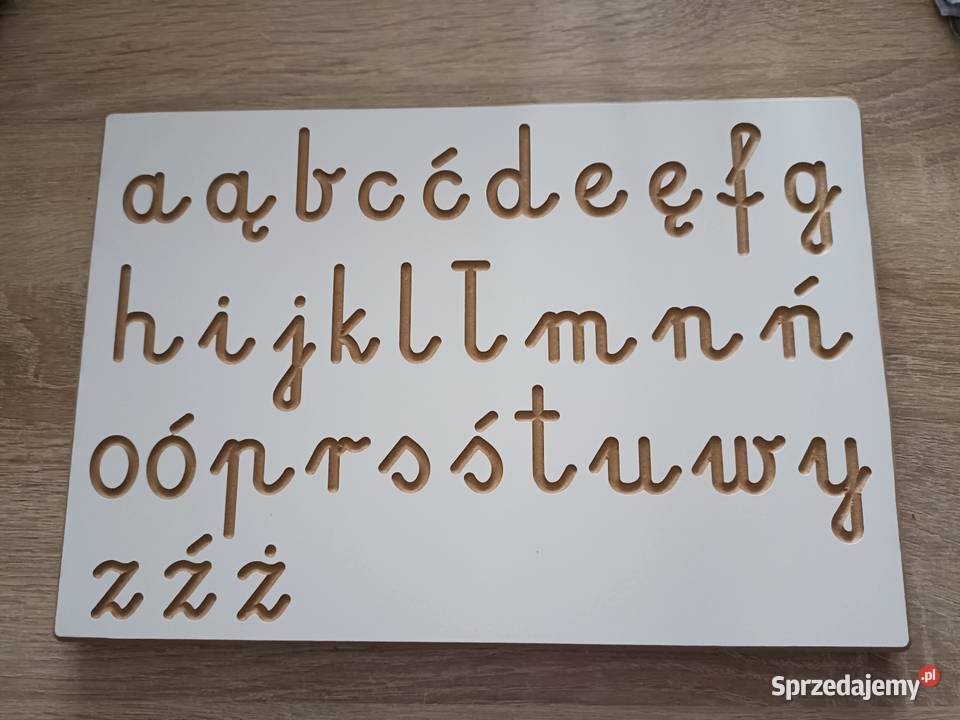 aąbcćdeęfg
hijklłmnń
oóprsśtuwy
zźż
Sprzedajemy.pl